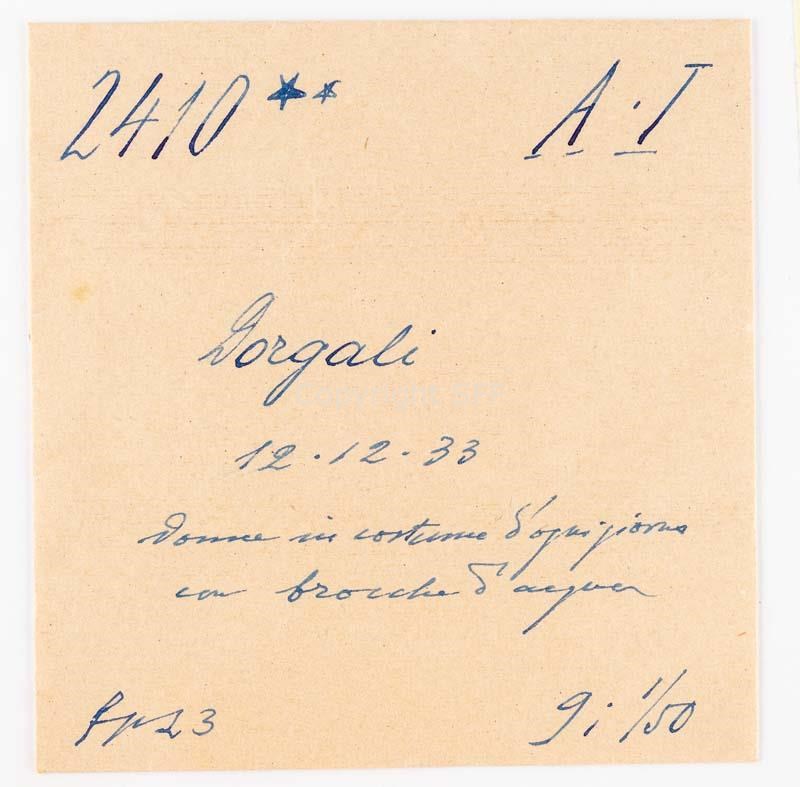 2410 ** A.I
Dorgali
12.12.33
Donne in costume d'ogni giorno
con brocche d'acqua
9i 1/50